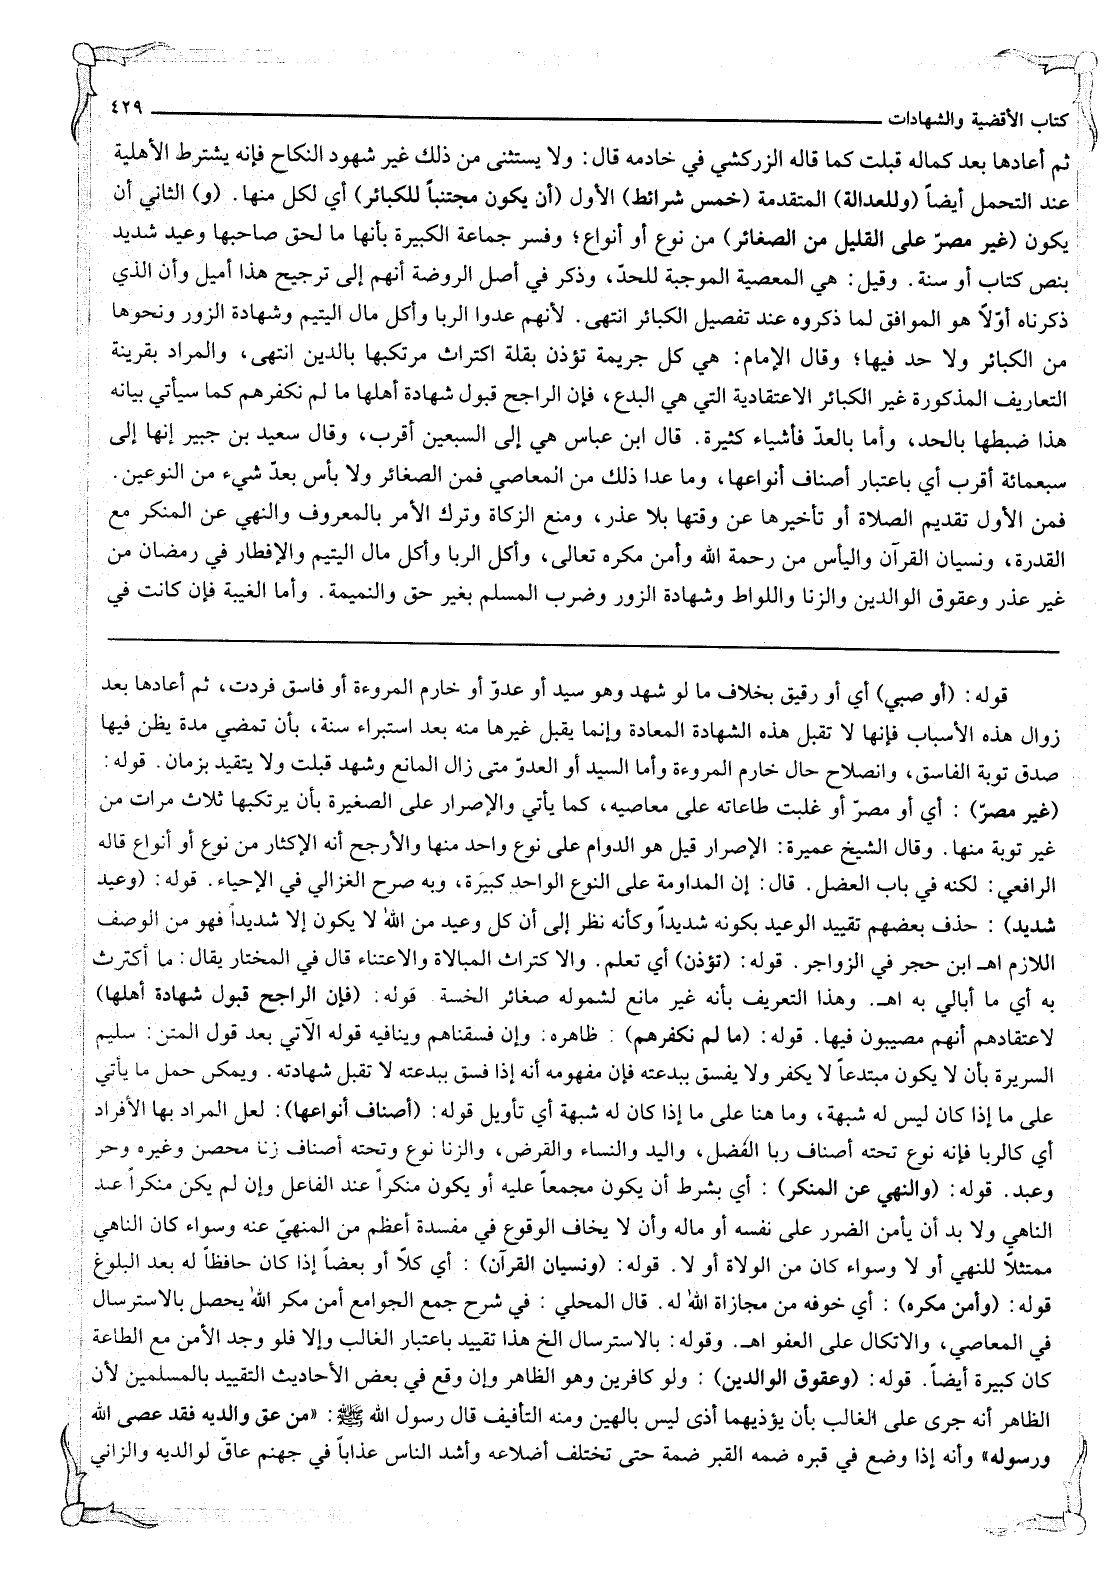 كتاب الأقضية والشهادات ٤٢٩
ثم أعادها بعد كماله قبلت كما قاله الزركشي في خادمه قال: ولا يستثنى من ذلك غير شهود النكاح فإنه يشترط الأهلية
عند التحمل أيضاً (وللعدالة) المتقدمة (خمس شرائط) الأول (أن يكون مجتنباً للكبائر) أي لكل منها. (و) الثاني أن
يكون (غير مصرّ على القليل من الصغائر) من نوع أو أنواع؛ وفسر جماعة الكبيرة بأنها ما لحق صاحبها وعيد شديد
بنص كتاب أو سنة. وقيل: هي المعصية الموجبة للحدّ، وذكر في أصل الروضة أنهم إلى ترجيح هذا أميل وأن الذي
ذكرناه أوّلاً هو الموافق لما ذكروه عند تفصيل الكبائر انتهى. لأنهم عدوا الربا وأكل مال اليتيم وشهادة الزور ونحوها
من الكبائر ولا حد فيها؛ وقال الإمام: هي كل جريمة تؤذن بقلة اكتراث مرتكبها بالدين انتهى، والمراد بقرينة
التعاريف المذكورة غير الكبائر الاعتقادية التي هي البدع، فإن الراجح قبول شهادة أهلها ما لم نكفرهم كما سيأتي بيانه
هذا ضبطها بالحد، وأما بالعدّ فأشياء كثيرة. قال ابن عباس هي إلى السبعين أقرب، وقال سعيد بن جبير إنها إلى
سبعمائة أقرب أي باعتبار أصناف أنواعها، وما عدا ذلك من المعاصي فمن الصغائر ولا بأس بعدّ شيء من النوعين.
فمن الأول تقديم الصلاة أو تأخيرها عن وقتها بلا عذر، ومنع الزكاة وترك الأمر بالمعروف والنهي عن المنكر مع
القدرة، ونسيان القرآن واليأس من رحمة الله وأمن مكره تعالى، وأكل الربا وأكل مال اليتيم والإفطار في رمضان من
غير عذر وعقوق الوالدين والزنا واللواط وشهادة الزور وضرب المسلم بغير حق والنميمة. وأما الغيبة فإن كانت في
قوله: (أو صبي) أي أو رقيق بخلاف ما لو شهد وهو سيد أو عدوّ أو خارم المروءة أو فاسق فردت، ثم أعادها بعد
زوال هذه الأسباب فإنها لا تقبل هذه الشهادة المعادة وإنما يقبل غيرها منه بعد استبراء سنة، بأن تمضي مدة يظن فيها
صدق توبة الفاسق، وانصلاح حال خارم المروءة وأما السيد أو العدوّ متى زال المانع وشهد قبلت ولا يتقيد بزمان. قوله:
(غير مصرّ) : أي أو مصرّ أو غلبت طاعاته على معاصيه، كما يأتي والإصرار على الصغيرة بأن يرتكبها ثلاث مرات من
غير توبة منها. وقال الشيخ عميرة: الإصرار قيل هو الدوام على نوع واحد منها والأرجح أنه الإكثار من نوع أو أنواع قاله
الرافعي: لكنه في باب العضل. قال: إن المداومة على النوع الواحد كبيرة، وبه صرح الغزالي في الإحياء. قوله: (وعيد
شديد) : حذف بعضهم تقييد الوعيد بكونه شديداً وكأنه نظر إلى أن كل وعيد من الله لا يكون إلا شديداً فهو من الوصف
اللازم اهـ ابن حجر في الزواجر. قوله: (تؤذن) أي تعلم. والاكتراث المبالاة والاعتناء قال في المختار يقال: ما أكترث
به أي ما أبالي به اهـ. وهذا التعريف بأنه غير مانع لشموله صغائر الخسة قوله: (فإن الراجح قبول شهادة أهلها)
لاعتقادهم أنهم مصيبون فيها. قوله: (ما لم نكفرهم) : ظاهره: وإن فسقناهم وينافيه قوله الآتي بعد قول المتن: سليم
السريرة بأن لا يكون مبتدعاً لا يكفر ولا يفسق ببدعته فإن مفهومه أنه إذا فسق ببدعته لا تقبل شهادته. ويمكن حمل ما يأتي
على ما إذا كان ليس له شبهة، وما هنا على ما إذا كان له شبهة أي تأويل قوله: (أصناف أنواعها): لعل المراد بها الأفراد
أي كالربا فإنه نوع تحته أصناف ربا الفضل، واليد والنساء والقرض، والزنا نوع وتحته أصناف زنا محصن وغيره وحر
وعبد. قوله: (والنهي عن المنكر) : أي بشرط أن يكون مجمعاً عليه أو يكون منكراً عند الفاعل وإن لم يكن منكراً عند
الناهي ولا بد أن يأمن الضرر على نفسه أو ماله وأن لا يخاف الوقوع في مفسدة أعظم من المنهيّ عنه وسواء كان الناهي
ممتثلاً للنهي أو لا وسواء كان من الولاة أو لا. قوله: (ونسيان القرآن) : أي كلّا أو بعضاً إذا كان حافظاً له بعد البلوغ
قوله: (وأمن مكره) : أي خوفه من مجازاة الله له. قال المحلي : في شرح جمع الجوامع أمن مكر الله يحصل بالاسترسال
في المعاصي، والاتكال على العفو اهـ. وقوله: بالاسترسال الخ هذا تقييد باعتبار الغالب وإلا فلو وجد الأمن مع الطاعة
كان كبيرة أيضاً. قوله: (وعقوق الوالدين) : ولو كافرين وهو الظاهر وإن وقع في بعض الأحاديث التقييد بالمسلمين لأن
الظاهر أنه جرى على الغالب بأن يؤذيهما أذى ليس بالهين ومنه التأفيف قال رسول الله ﷺ: «من عق والديه فقد عصى الله
ورسوله» وأنه إذا وضع في قبره ضمه القبر ضمة حتى تختلف أضلاعه وأشد الناس عذاباً في جهنم عاقّ لوالديه والزاني